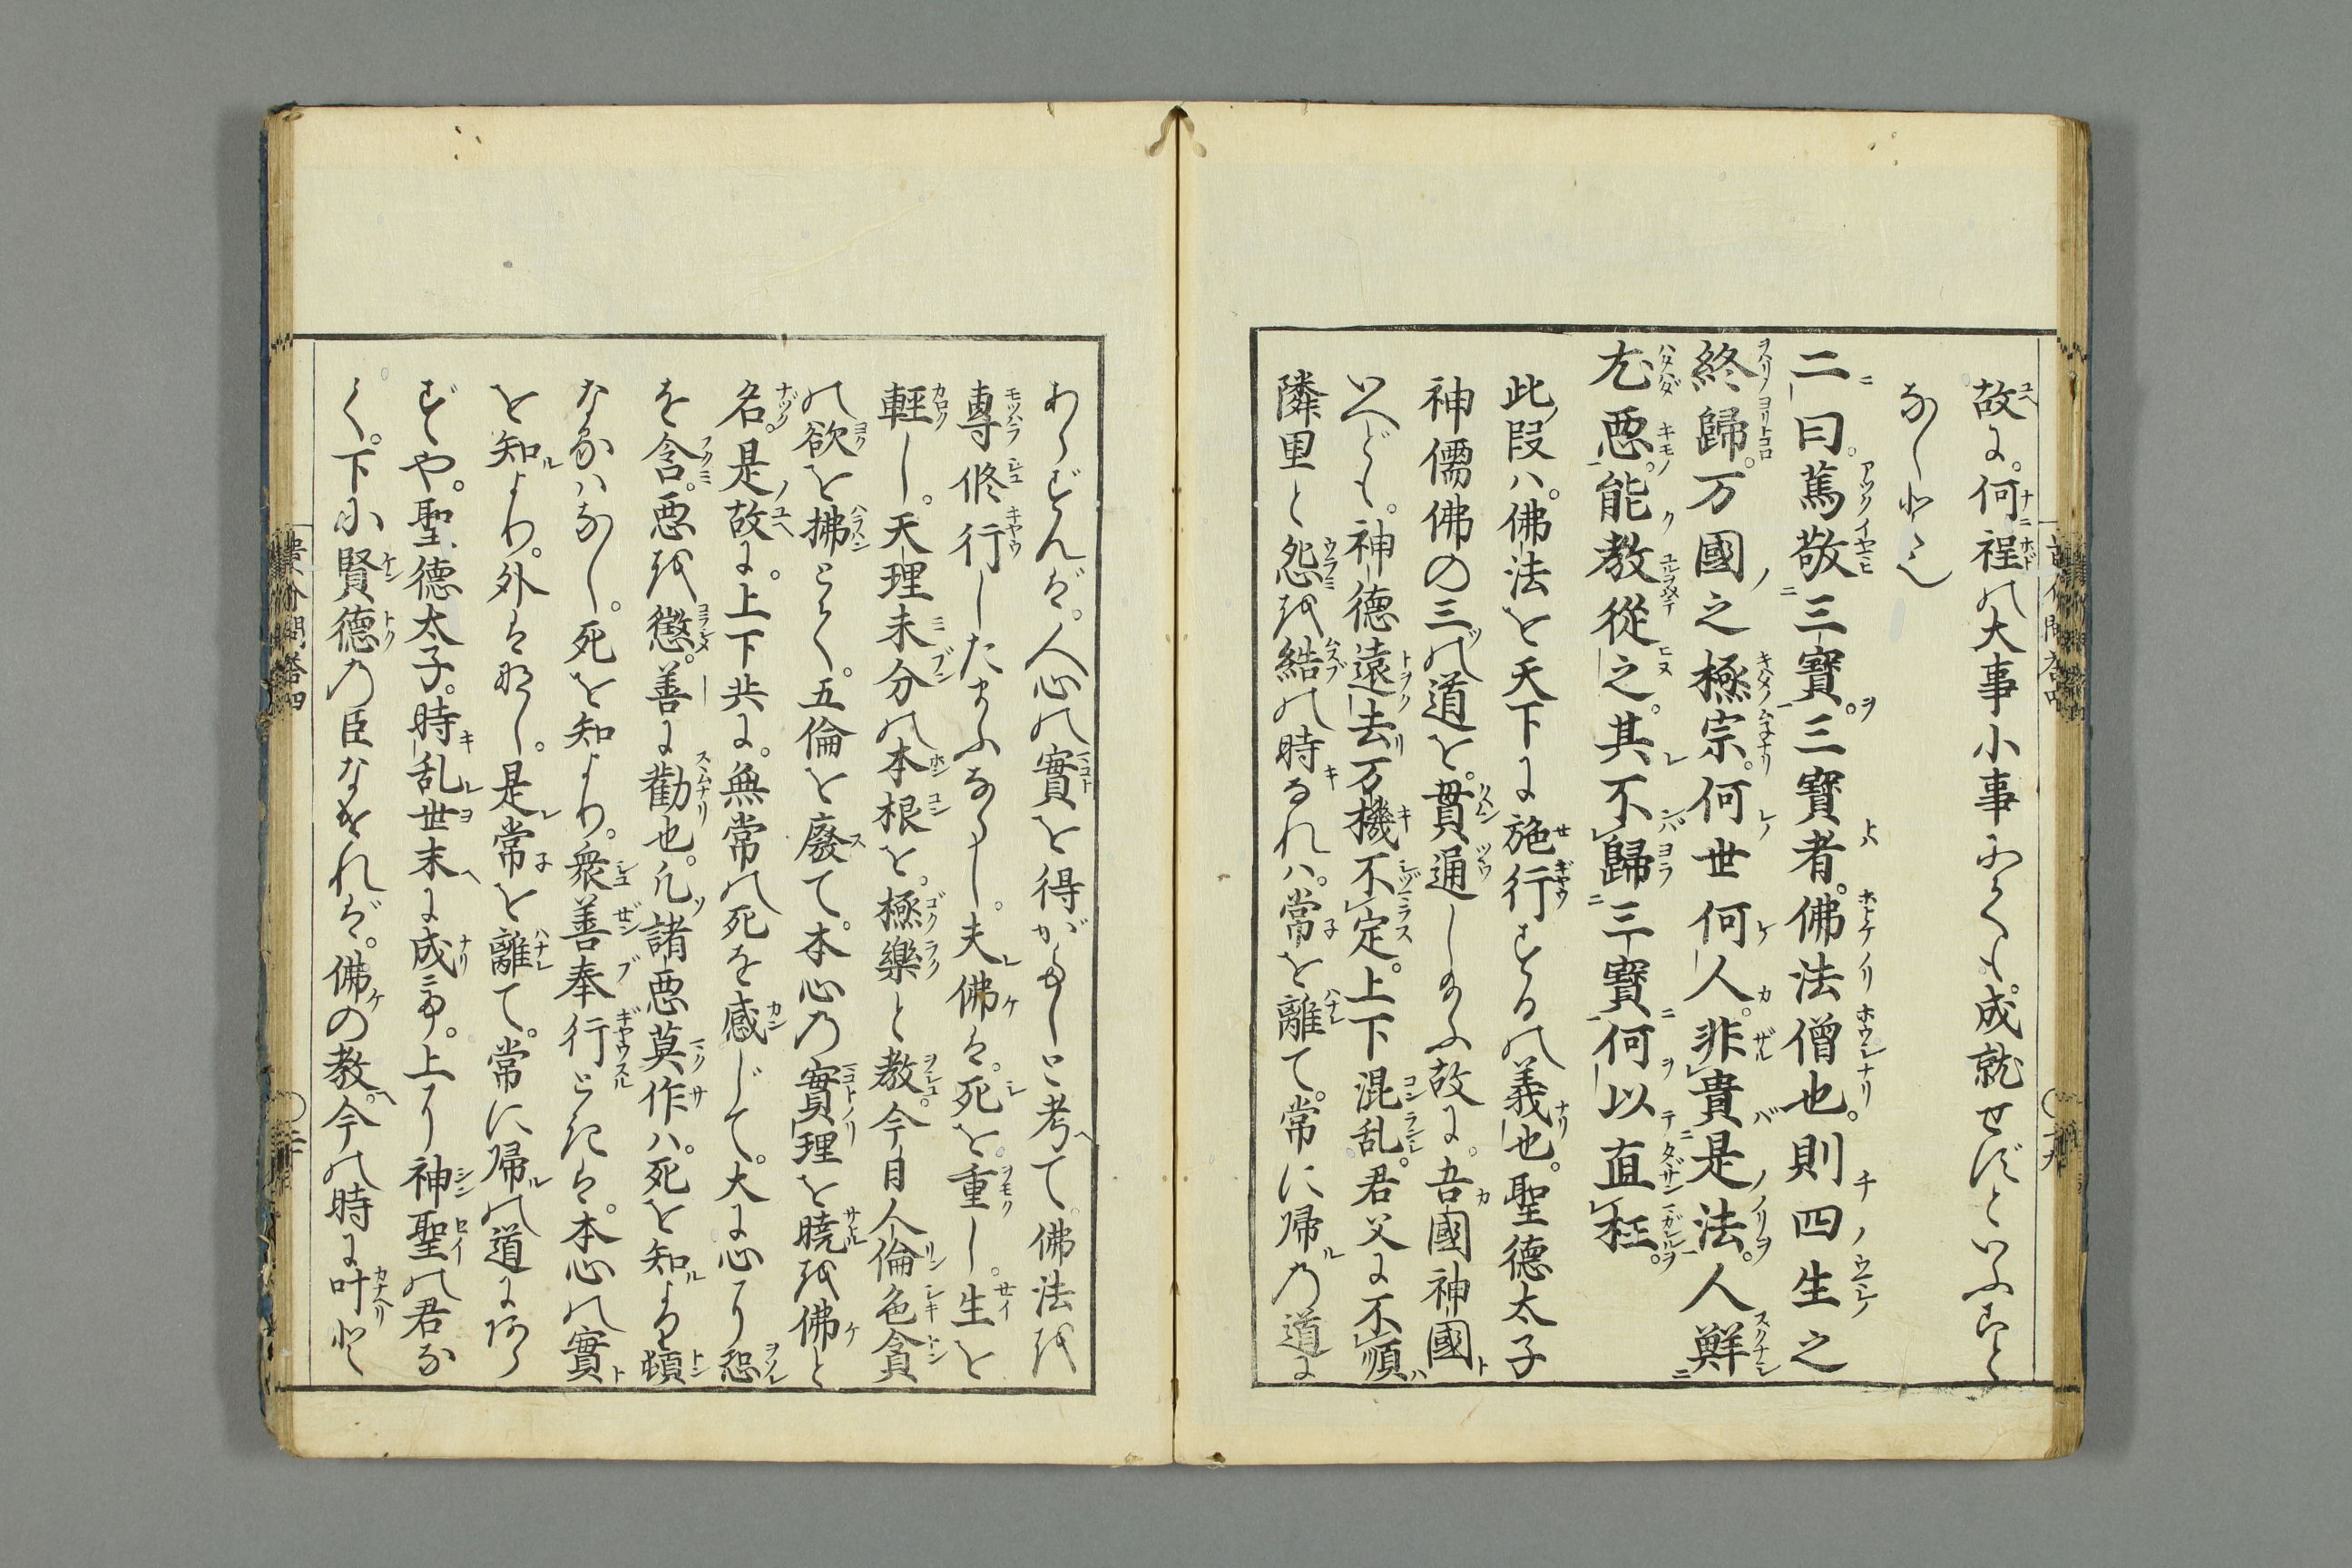 故に。何程の大事小事にても。成就せずといふこと
なしと也
二曰。篤敬三寶。三寶者。佛法僧也。則四生之
終歸。万國之極宗。何世何人。非貴是法。人鮮
尤悪。能教從之。其不歸三寶。何以直枉。
此段ハ。佛法を天下に施行するの義也。聖德太子
神儒佛の三の道を。貫通したまふ故に。吾國神國
といへども。神德遠去。万機不定。上下混乱。君父に不順
隣里と怨を結の時なれハ。常を離て。常に帰の道に
あらずんば。人心の實を得がたしと考て。佛法を
專修行したまふなるべし。夫佛は。死を。重し。生を
輕し。天理未分の本根を。極樂と教。今日人倫色貪
の欲を拂とく。五倫を廢て。本心の實理を曉を佛と
名。是故に。上下共に。無常の死を感じて。大に心に恐
を含。悪を懲。善に勸也。凡諸悪莫作ハ。死を知より頓
なるハなし。死を知より。衆善奉行ときは。本心の實
を知より。外はなし。是常を離て。常に帰の道にあら
ずや。聖德太子。時乱世末に成て。上に神聖の君な
く。下に賢德の臣なければ。佛の教。今の時に叶と